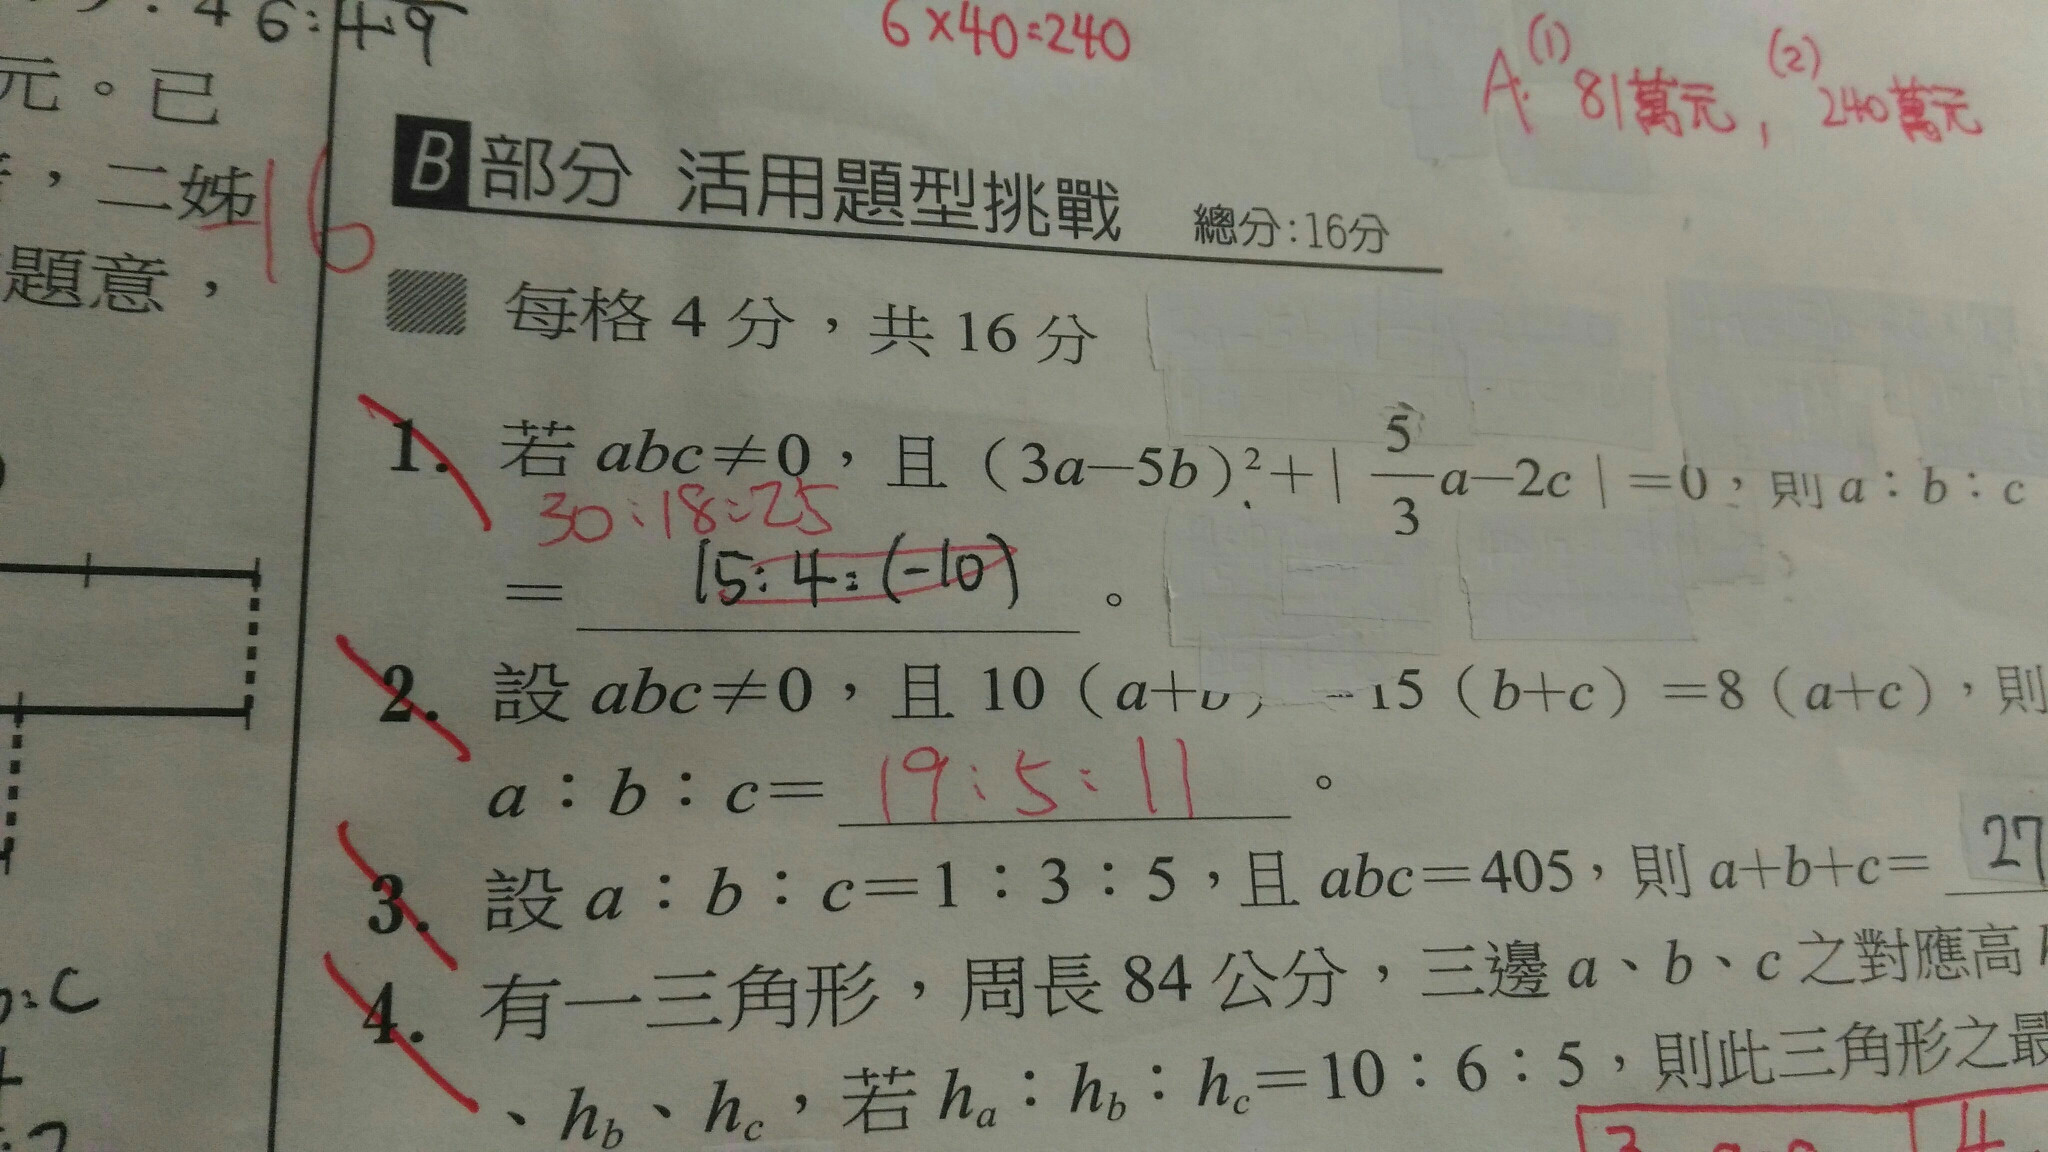 6:49
6×40=240
A: (1) 81萬元, (2) 240萬元
元。已
，二姊
16
題意，
B 部分 活用題型挑戰 總分:16分
每格 4 分，共 16 分
1. 若 abc≠0，且（3a−5b）²+｜5/3 a−2c｜=0，則 a：b：c
30:18:25
= 15:4:(-10) 。
2. 設 abc≠0，且 10（a+b）=15（b+c）=8（a+c），則
a：b：c= 19:5:11 。
3. 設 a：b：c=1：3：5，且 abc=405，則 a+b+c= 27
4. 有一三角形，周長 84 公分，三邊 a、b、c 之對應高
、hb、hc，若 ha：hb：hc=10：6：5，則此三角形之最
:c